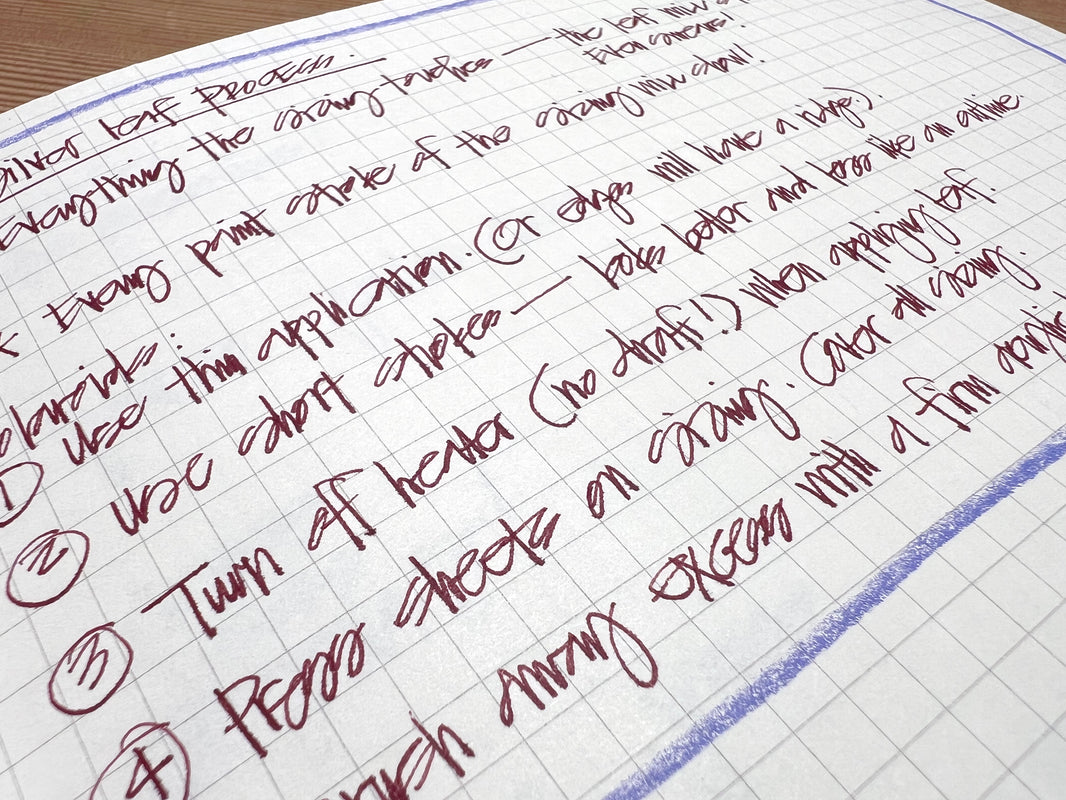 Silver Leaf Process:
Everything the sizing touches — the leaf will
Even canvas!
* Every paint stroke of the sizing will show!
① Use thin application. (Or edges will have a ridge.).
② Use short strokes — looks better and less like an outline.
③ Turn off heater (no draft!) when applying leaf.
④ Press sheets on sizing. Cover all sizing.
away excess with a firm